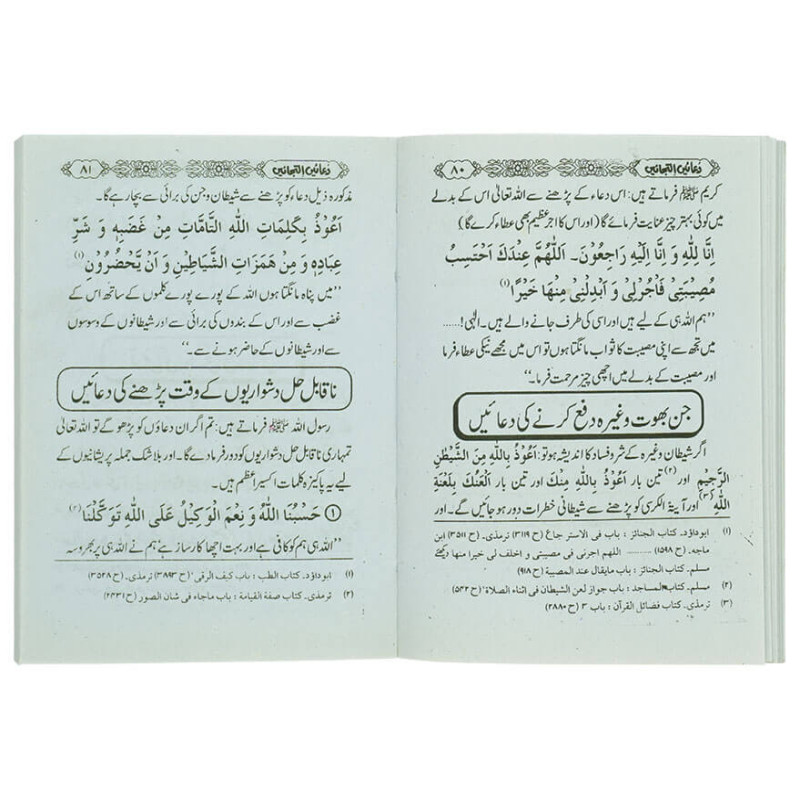 دُعائیں التجائیں ۸۰
کریم ﷺ فرماتے ہیں: اس دعاء کے پڑھنے سے اللہ تعالیٰ اس کے بدلے
میں کوئی بہتر چیز عنایت فرمائے گا (اور اس کا اجر عظیم بھی عطاء کرے گا)
اِنَّا لِلّٰهِ وَ اِنَّا اِلَيْهِ رَاجِعُوْنَ۔ اَللّٰهُمَّ عِنْدَكَ اَحْتَسِبُ
مُصِيْبَتِىْ فَأْجُرْنِىْ وَ اَبْدِلْنِىْ مِنْهَا خَيْرًا (۱)
”ہم اللہ ہی کے لیے ہیں اور اسی کی طرف جانے والے ہیں۔ الٰہی! ......
میں تجھ سے اپنی مصیبت کا ثواب مانگتا ہوں تو اس میں مجھے نیکی عطاء فرما
اور مصیبت کے بدلے میں اچھی چیز مرحمت فرما۔“
جن بھوت وغیرہ دفع کرنے کی دعائیں
اگر شیطان وغیرہ کے شر و فساد کا اندیشہ ہو تو: اَعُوْذُ بِاللّٰهِ مِنَ الشَّيْطٰنِ
الرَّجِيْمِ اور (۲) تین بار اَعُوْذُ بِاللّٰهِ مِنْكَ اور تین بار اَلْعَنُكَ بِلَعْنَةِ
اللّٰهِ (۳) اور آیۃ الکرسی کو پڑھنے سے شیطانی خطرات دور ہو جائیں گے۔ اور
(۱) ابوداؤد۔ کتاب الجنائز: باب فی الاسترجاع (ح ۳۱۱۹) ترمذی۔ (ح ۳۵۱۱) ابن
ماجہ۔ (ح ۱۵۹۸) ......... اللهم اجرنی فی مصیبتی و اخلف لی خیرا منها دیکھئے
مسلم۔ کتاب الجنائز: باب مایقال عند المصیبة (ح ۹۱۸)
(۲) مسلم۔ کتاب المساجد: باب جواز لعن الشیطان فی اثناء الصلاة" (ح ۵۴۲)
(۳) ترمذی۔ کتاب فضائل القرآن: باب ۳ (ح ۲۸۸۰)
دُعائیں التجائیں ۸۱
مذکورہ ذیل دعاء کو پڑھنے سے شیطان و جن کی برائی سے بچا رہے گا۔
اَعُوْذُ بِكَلِمَاتِ اللّٰهِ التَّامَّاتِ مِنْ غَضَبِهٖ وَ شَرِّ
عِبَادِهٖ وَ مِنْ هَمَزَاتِ الشَّيَاطِيْنِ وَ اَنْ يَّحْضُرُوْنِ (۱)
”میں پناہ مانگتا ہوں اللہ کے پورے پورے کلموں کے ساتھ اس کے
غضب سے اور اس کے بندوں کی برائی سے اور شیطانوں کے وسوسوں
سے اور شیطانوں کے حاضر ہونے سے۔“
ناقابل حل دشواریوں کے وقت پڑھنے کی دعائیں
رسول اللہ ﷺ فرماتے ہیں: تم اگر ان دعاؤں کو پڑھو گے تو اللہ تعالیٰ
تمہاری ناقابل حل دشواریوں کو دور فرما دے گا۔ اور بلاشک جملہ پریشانیوں کے
لیے یہ پاکیزہ کلمات اکسیر اعظم ہیں۔
① حَسْبُنَا اللّٰهُ وَ نِعْمَ الْوَكِيْلُ عَلَى اللّٰهِ تَوَكَّلْنَا (۲)
”اللہ ہی ہم کو کافی ہے اور بہت اچھا کارساز ہے ہم نے اللہ ہی پر بھروسہ
(۱) ابوداؤد۔ کتاب الطب: باب کیف الرقی" (ح ۳۸۹۳) ترمذی۔ (ح ۳۵۲۸)
(۲) ترمذی۔ کتاب صفة القیامة: باب ماجاء فی شان الصور (ح ۲۴۳۱)